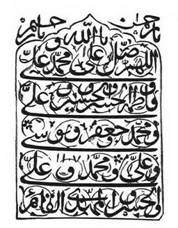 يا الله
اللهم صل على محمد وعلي
وفاطمة وحسن وحسين وعلي
ومحمد وجعفر وموسى
وعلي ومحمد وعلي
والحسن المهدي القائم